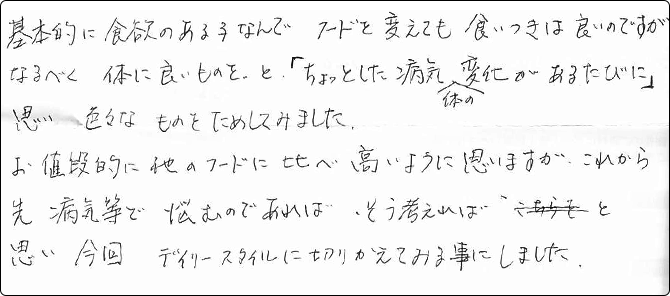 基本的に食欲のある子なんで フードを変えても食いつきは良いのですが
なるべく 体に良いものを、と、「ちょっとした病気 体の変化があるたびに」
思い 色々なものをためしてみました。
お値段的に他のフードに比べ高いように思いますが、これから
先 病気等で悩むのであれば、そう考えれば こちらを と
思い 今回 デイリースタイルに切りかえてみる事にしました。